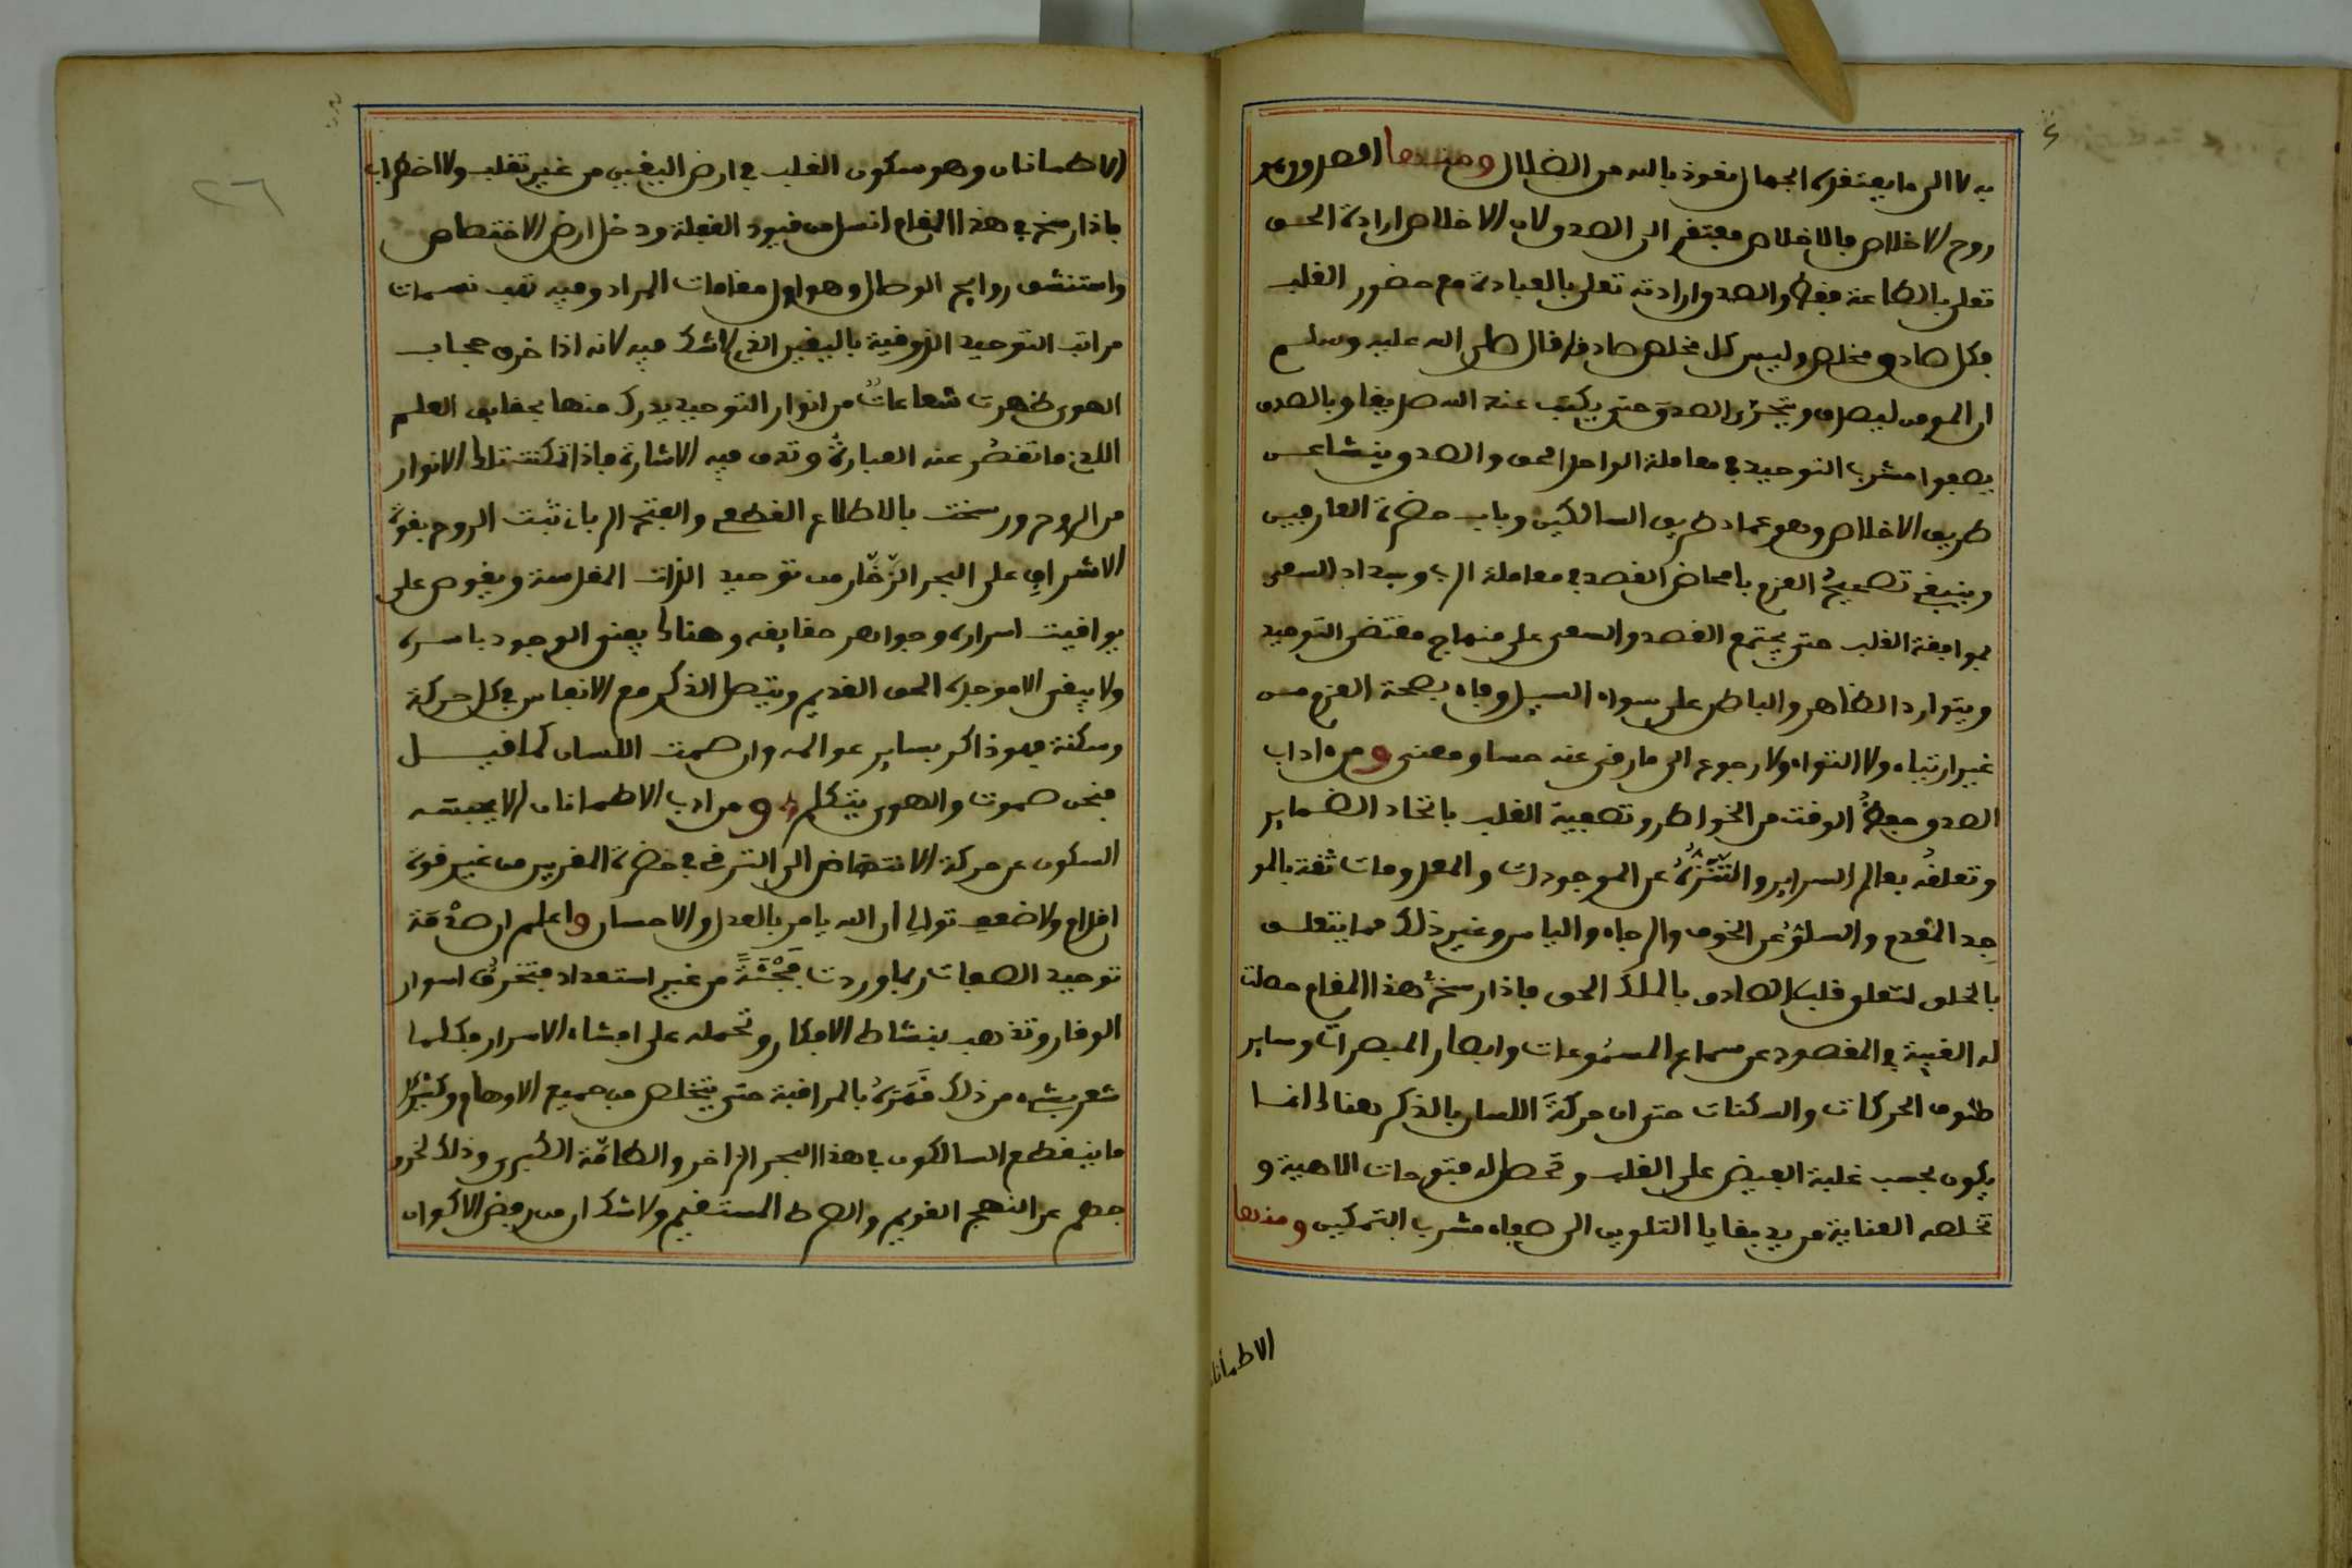 به لا الى ما يعتقده الجهال نعوذ بالله من الضلال ومنها الصدق وهو
روح الاخلاص فالاخلاص مفتقر الى الصدق لان الاخلاص ارادة الحق
تعلى بالطاعة فقط والصدق ارادته تعلى بالعبادة مع حضور القلب
فكل صادق مخلص وليس كل مخلص صادقا قال صلى الله عليه وسلم
ان المومن ليصدق ويتحرى الصدق حتى يكتب عند الله صديقا وبالصدق
يصفوا مشرب التوحيد في معاملة الواحد الحق والصدق ينشا عن
طريق الاخلاص وهو عماد طريق السالكين وباب حضرة العارفين
وينبغي تصحيح العزم بامحاض القصد في معاملة الرب وسداد السعي
بموافقة القلب حتى يجتمع القصد والسعي على منهاج مقتضى التوحيد
ويتوارد الظاهر والباطن على سواء السبيل وفاء بصحة العزم من
غير ارتياء ولا التواء ولا رجوع الى ما رقى عنه حسا ومعنى ومن اداب
الصدق حفظ الوقت من الخواطر وتصفية القلب باتحاد الضماير
وتعلقه بعالم السراير والتنزه عن الموجودات والمعلومات ثقة بالمو
جد المقدم والسلو عن الخوف والرجاء والياس وغير ذلك مما يتعلق
بالخلق لتعلق قلب الصادق بالملك الحق فاذا رسخ في هذا المقام حصلت
له الغيبة في المقصود عن سماع المسموعات وابصار المبصرات وساير
صنوف الحركات والسكنات حتى ان حركة اللسان بالذكر هنالك انما
يكون بحسب غلبة الفيض على القلب وتحصل له فتوحات الاهية و
تخلصه العناية من يد بقايا التلوين الى صفاء مشرب التمكين ومنها
الاطمانا
٢٦
الاطمانان وهو سكون القلب في ارض اليقين من غير تقلب ولا اضطراب
فاذا رسخ في هذا المقام انسل من قيود الغفلة ودخل ارض الاختصاص
واستنشق روايح الوصال وهو اول مقامات المراد وفيه تهب نسمات
مراتب التوحيد الذوقية باليقين الذي لاشك فيه لانه اذا خرق حجاب
الهوى ظهرت شعاعات من انوار التوحيد يدرك منها بحقايق العلم
اللدني ما تقصر عنه العبارة وتدق فيه الاشارة فاذا تمكنت تلك الانوار
من الروح ورسخت بالاطلاع القطعي والفتح الرباني ثبت الروح بقوة
الاشراف على البحر الزخار من توحيد الذات المقدسة ويغوص على
يواقيت اسراره وجواهر حقايقه وهنالك يفنى الوجود باسره
ولا يبقى الا موجده الحق القديم ويتصل الذكر مع الانفاس في كل حركة
وسكنة فهو ذاكر بساير عوالمه وان صمت اللسان كما قيل
فنحن صموت والهوى يتكلم ومن ادب الاطمانان الا يحبسه
السكون عن حركة الانتهاض الى الترقي في حضرة المقربين من غير قوة
اقلاع ولا ضعف تولي ان الله يامر بالعدل والاحسان واعلم ان صدمة
توحيد الصفات ربما وردت فجئة من غير استعداد فتخرق اسوار
الوقار وتذهب بنشاط الافكار وتحمله على افشاء الاسرار فكلما
شعر بشيء من ذلك قهره بالمراقبة حتى يتخلص من جميع الاوهام وكثيرا
ما ينقطع السالكون في هذا البحر الزاخر والطامة الكبرى وذلك لخرو
جهم عن النهج القويم والصراط المستقيم ولا شك ان من رفض الاكوان